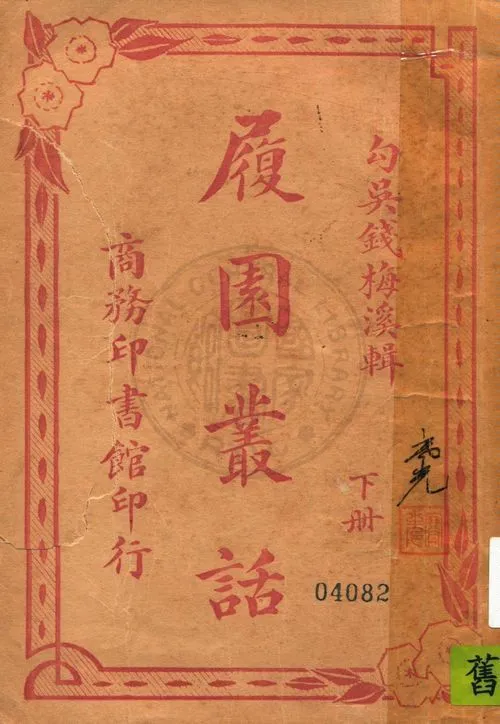 勾吳錢梅溪輯
下册
履園叢話
商務印書館印行
04082
舊